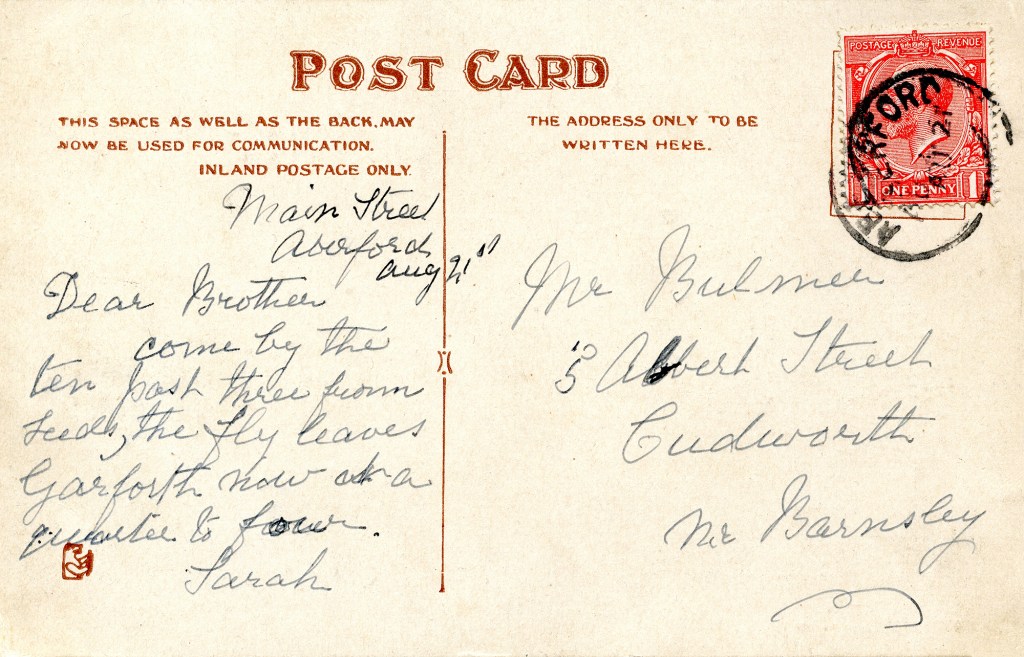 POST CARD
THIS SPACE AS WELL AS THE BACK, MAY
NOW BE USED FOR COMMUNICATION.
INLAND POSTAGE ONLY.
THE ADDRESS ONLY TO BE
WRITTEN HERE.
POSTAGE REVENUE
ONE PENNY 1
ABERFORD
21
Main Street
Aberford
Aug 21st
Dear Brother
come by the
ten past three from
Leeds, the fly leaves
Garforth now at a
quarter to four.
Sarah
Mr Bulmer
5 Albert Street
Cudworth
Nr Barnsley